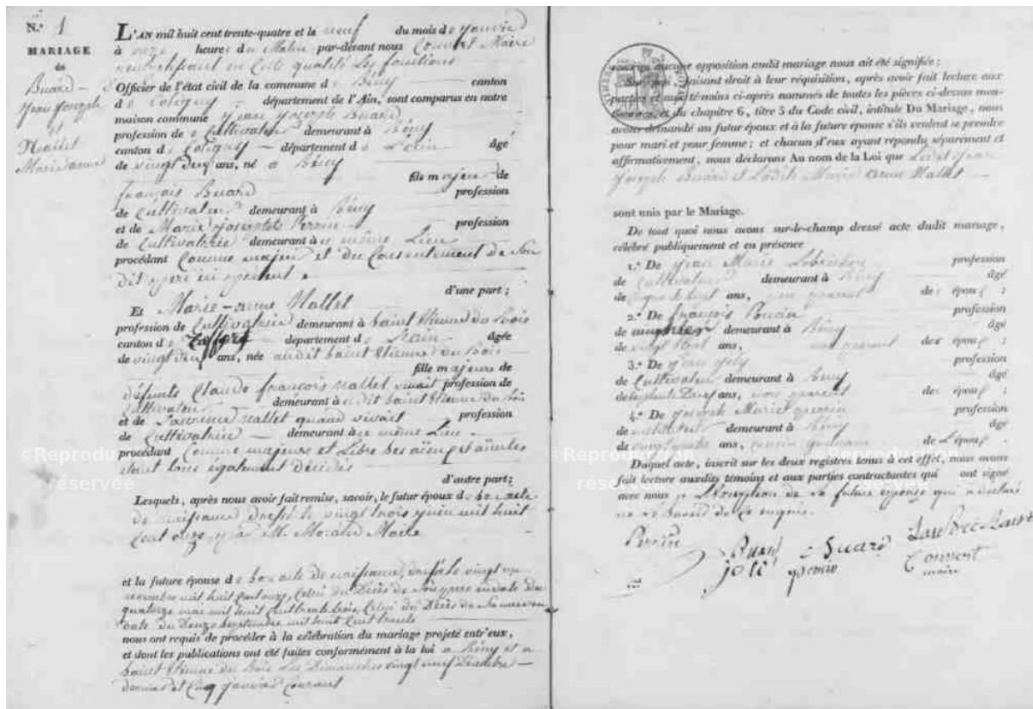 N.° 1
MARIAGE
de
Buard
Jean Joseph
et
Mallet
Marie anne
L'AN mil huit cent trente-quatre et le neuf du mois de janvier
à onze heures du Matin par-devant nous Convert Maire
en cette qualité les fonctions
Officier de l'état civil de la commune de Bény canton
de Coligny département de l'Ain, sont comparus en notre
maison commune Jean Joseph Buard
profession de Cultivateur demeurant à Bény
canton de Coligny département de L'ain âgé
de vingt deux ans, né à Bény
fils majeur de
françois Buard profession
de Cultivateur demeurant à Bény
et de Marie Josephte Perrin profession
de Cultivatrice demeurant à même Lieu
procédant Comme majeur et du Consentement de Son
dit père ici présent
d'une part;
Et Marie-anne Mallet
profession de Cultivatrice demeurant à Saint Etienne du Bois
canton de département de L'ain âgée
de vingt deux ans, née audit Saint Etienne du Bois
fille majeure de
défunts Claude françois Mallet vivait profession de
Cultivateur demeurant audit Saint Etienne du Bois
et de Mallet quand vivait profession
de Cultivatrice demeurant à même Lieu
procédant Comme majeure et Libre ses aïeux
étant tous également décédés
d'autre part;
Lesquels, après nous avoir fait remise, savoir, le futur époux de Son acte
de naissance dressé le vingt trois juin mil huit
cent onze par M. Morand Maire
et la future épouse de Son acte de naissance, du vingt
novembre mil huit cent onze, Celui du Décès de Son père en date du
quatorze mai mil huit cent trente trois, Celui du Décès de Sa mère en
date du Douze Septembre mil huit cent trente
nous ont requis de procéder à la célébration du mariage projeté entr'eux,
et dont les publications ont été faites conformément à la loi à Bény et à
Saint Etienne du Bois Les Dimanches vingt neuf Décembre
dernier et Cinq Janvier Courant
aucune opposition audit mariage nous ait été signifiée;
faisant droit à leur réquisition, après avoir fait lecture aux
parties et aux témoins ci-après nommés de toutes les pièces ci-dessus men-
tionnées, et du chapitre 6, titre 5 du Code civil, intitulé Du Mariage, nous
avons demandé au futur époux et à la future épouse s'ils veulent se prendre
pour mari et pour femme; et chacun d'eux ayant répondu séparément et
affirmativement, nous déclarons Au nom de la Loi que Ledit Jean
Joseph Buard et Ladite Marie anne Mallet
sont unis par le Mariage.
De tout quoi nous avons sur-le-champ dressé acte dudit mariage,
célébré publiquement et en présence
1.° De Jean Marie profession
de Cultivateur demeurant à Bény âgé
de ans, non parent des époux;
2.° De françois Poncin profession
de demeurant à Bény âgé
de vingt huit ans, non parent des époux;
3.° De Jean Joly profession
de Cultivateur demeurant à Bény âgé
de ans, non parent des époux;
4.° De Joseph Marie Perrin profession
de demeurant à Bény âgé
de ans, cousin germain de L'époux
Duquel acte, inscrit sur les deux registres tenus à cet effet, nous avons
fait lecture auxdits témoins et aux parties contractantes qui ont signé
avec nous à L'exception de la future épouse qui a déclaré
ne le Savoir de Ce enquise.
Perrin
Buard
Buard
joli
poncin
Convert
maire
©Reproduction
réservée
©Reproduction
réservée